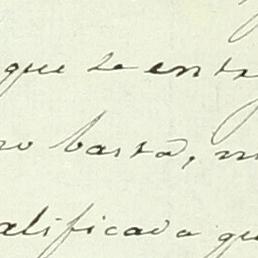 que se ent
no basta, m
alificada qu